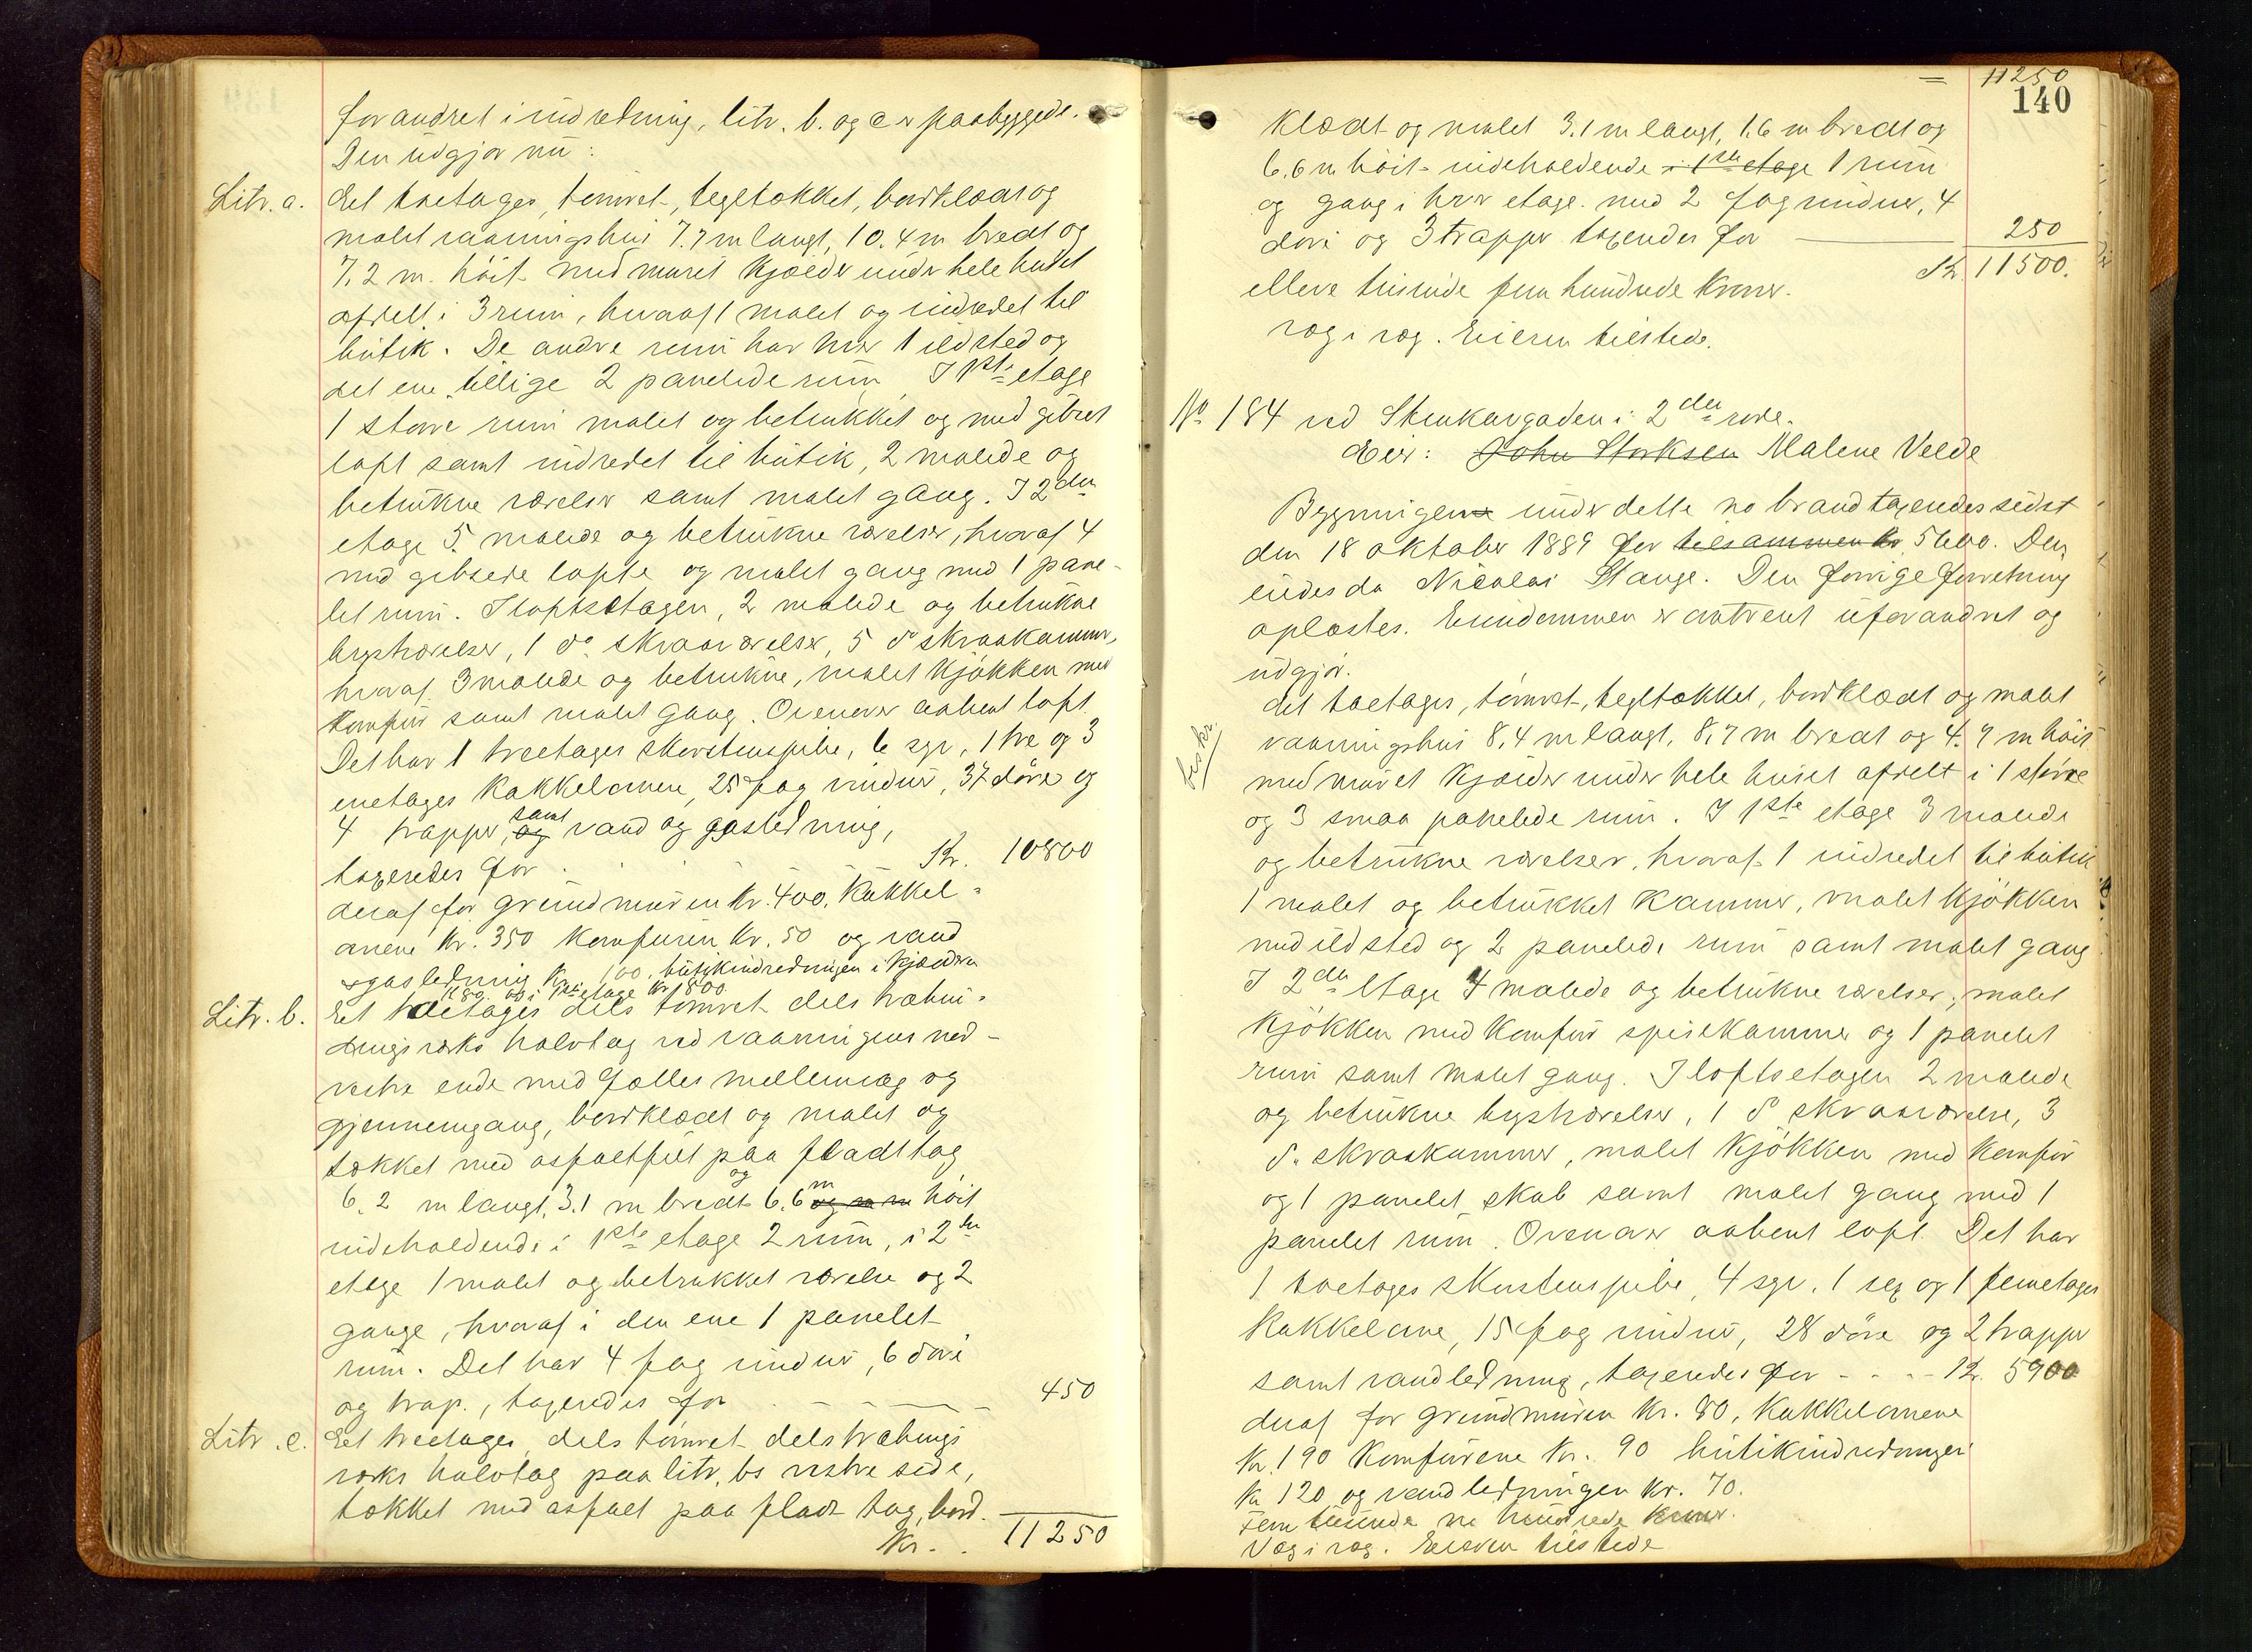 forandret i indretning, litr. b. og c er paabyggede.
Den udgjør nu:
Litr. a. Et toetages, tømret, tegltækket, bordklædt og
malet vaaningshus 7.7 m langt, 10.4 m bredt og
7.2 m. høit med muret kjælder under hele huset
afdelt i 3 rum, hvoraf 1 malet og indredet til
butik. De andre rum har hver 1 ildsted og
det ene tillige 2 panelede rum I 1ste etage
1 større rum malet og betrukket og med gibset
loft samt indredet til butik, 2 malede og
betrukne værelser samt malet gang. I 2den
etage 5 malede og betrukne værelser, hvoraf 4
med gibsede lofte og malet gang med 1 pane-
let rum. I loftsetagen, 2 malede og betrukne
kvistværelser, 1 do skraaværelser, 5 do skraakammer,
hvoraf 3 malede og betrukne, malet kjøkken med
komfur samt malet gang. Ovenover aabent loft.
Det har 1 treetages skorstenspibe, 6 sgr, 1 tre og 3
enetages kakkelovne, 25 fag vinduer, 37 døre og
4 trapper, og samt vand og gasledning,
taxeredes for . . . Kr. 10800
deraf for grundmuren kr. 400, kakkel-
ovnene kr. 350 komfuren kr. 50 og vand
& gasledning Kr 100. butikindredningen i kjælderen
k 80. og i 1ste etage kr 1800.
Litr. b. Et toetages dels tømret dels træbin-
dingsværks halvtag ved vaaningens nord-
vestre ende med fælles mellemvæg og
gjennemgang, bordklædt og malet og
tækket med asfaltfilt paa fladt tag
6.2 m langt, 3.1 m bredt og 6.6 m og m m høit
indeholdende i 1ste etage 2 rum, i 2den
etage 1 malet og betrukket værelse og 2
gange, hvoraf i den ene 1 panelet
rum. Det har 4 fag vinduer, 6 døre
og trap., taxeredes for - - - 450
Litr. c. Et treetages, dels tømret dels træbings
værks halvtag paa litr. bs vestre side,
tækket med asfalt paa fladt tag, bord-
Kr. . 11250
= 11250
140
klædt og malet 3.1 m langt, 1.6 m bredt og
6.6 m høit indeholdende i 1ste etage 1 rum
og gang i hver etage. med 2 fag vinduer, 4
døre og 3 trapper taxeredes for — 250
Kr. 11500.
elleve tusinde fem hundrede kroner.
Væg i væg. Eieren tilstede.
No 184 ved Stenkargaden i 2den rode.
Eier: John Storksen Malene Velde
Bygningene under dette no brandtaxeredes sidst
den 18 oktober 1889 for tilsammen kr 5600. Den
eiedes da Nicolai Stange. Den forrige forretning
oplæstes. Eiendommen er omtrent uforandret og
udgjør.
beskr.
Et toetages, tømret, tegltækket, bordklædt og malet
vaaningshus 8,4 m langt, 8,7 m bredt og 4.9 m høit
med muret kjælder under hele huset afdelt i 1 større
og 3 smaa panelede rum. I 1ste etage 3 malede
og betrukne værelser, hvoraf 1 indredet til butik
1 malet og betrukket kammer, malet kjøkken
med ildsted og 2 panelede rum samt malet gang
I 2den etage 4 malede og betrukne værelser, malet
kjøkken med komfur spisekammer og 1 panelet
rum samt malet gang. I loftsetagen 2 malede
og betrukne kvistværelser, 1 do skraaværelse, 3
do skraakammer, malet kjøkken med komfur
og 1 panelet skab samt malet gang med 1
panelet rum. Ovenover aabent loft. Det har
1 toetages skorstenspibe, 4 sgr. 1 sex og 1 femetages
kakkelovne, 15 fag vinduer, 28 døre og 2 trapper
samt vandledning, taxeredes for - - - - Kr. 5900
deraf for grundmuren kr. 80, kakkelovnene
kr. 190 komfurene kr. 90 butikindredningen
kr 120 og vandledningen kr. 70.
Fem tusinde ni hundrede kroner.
Væg i væg. Eieren tilstede